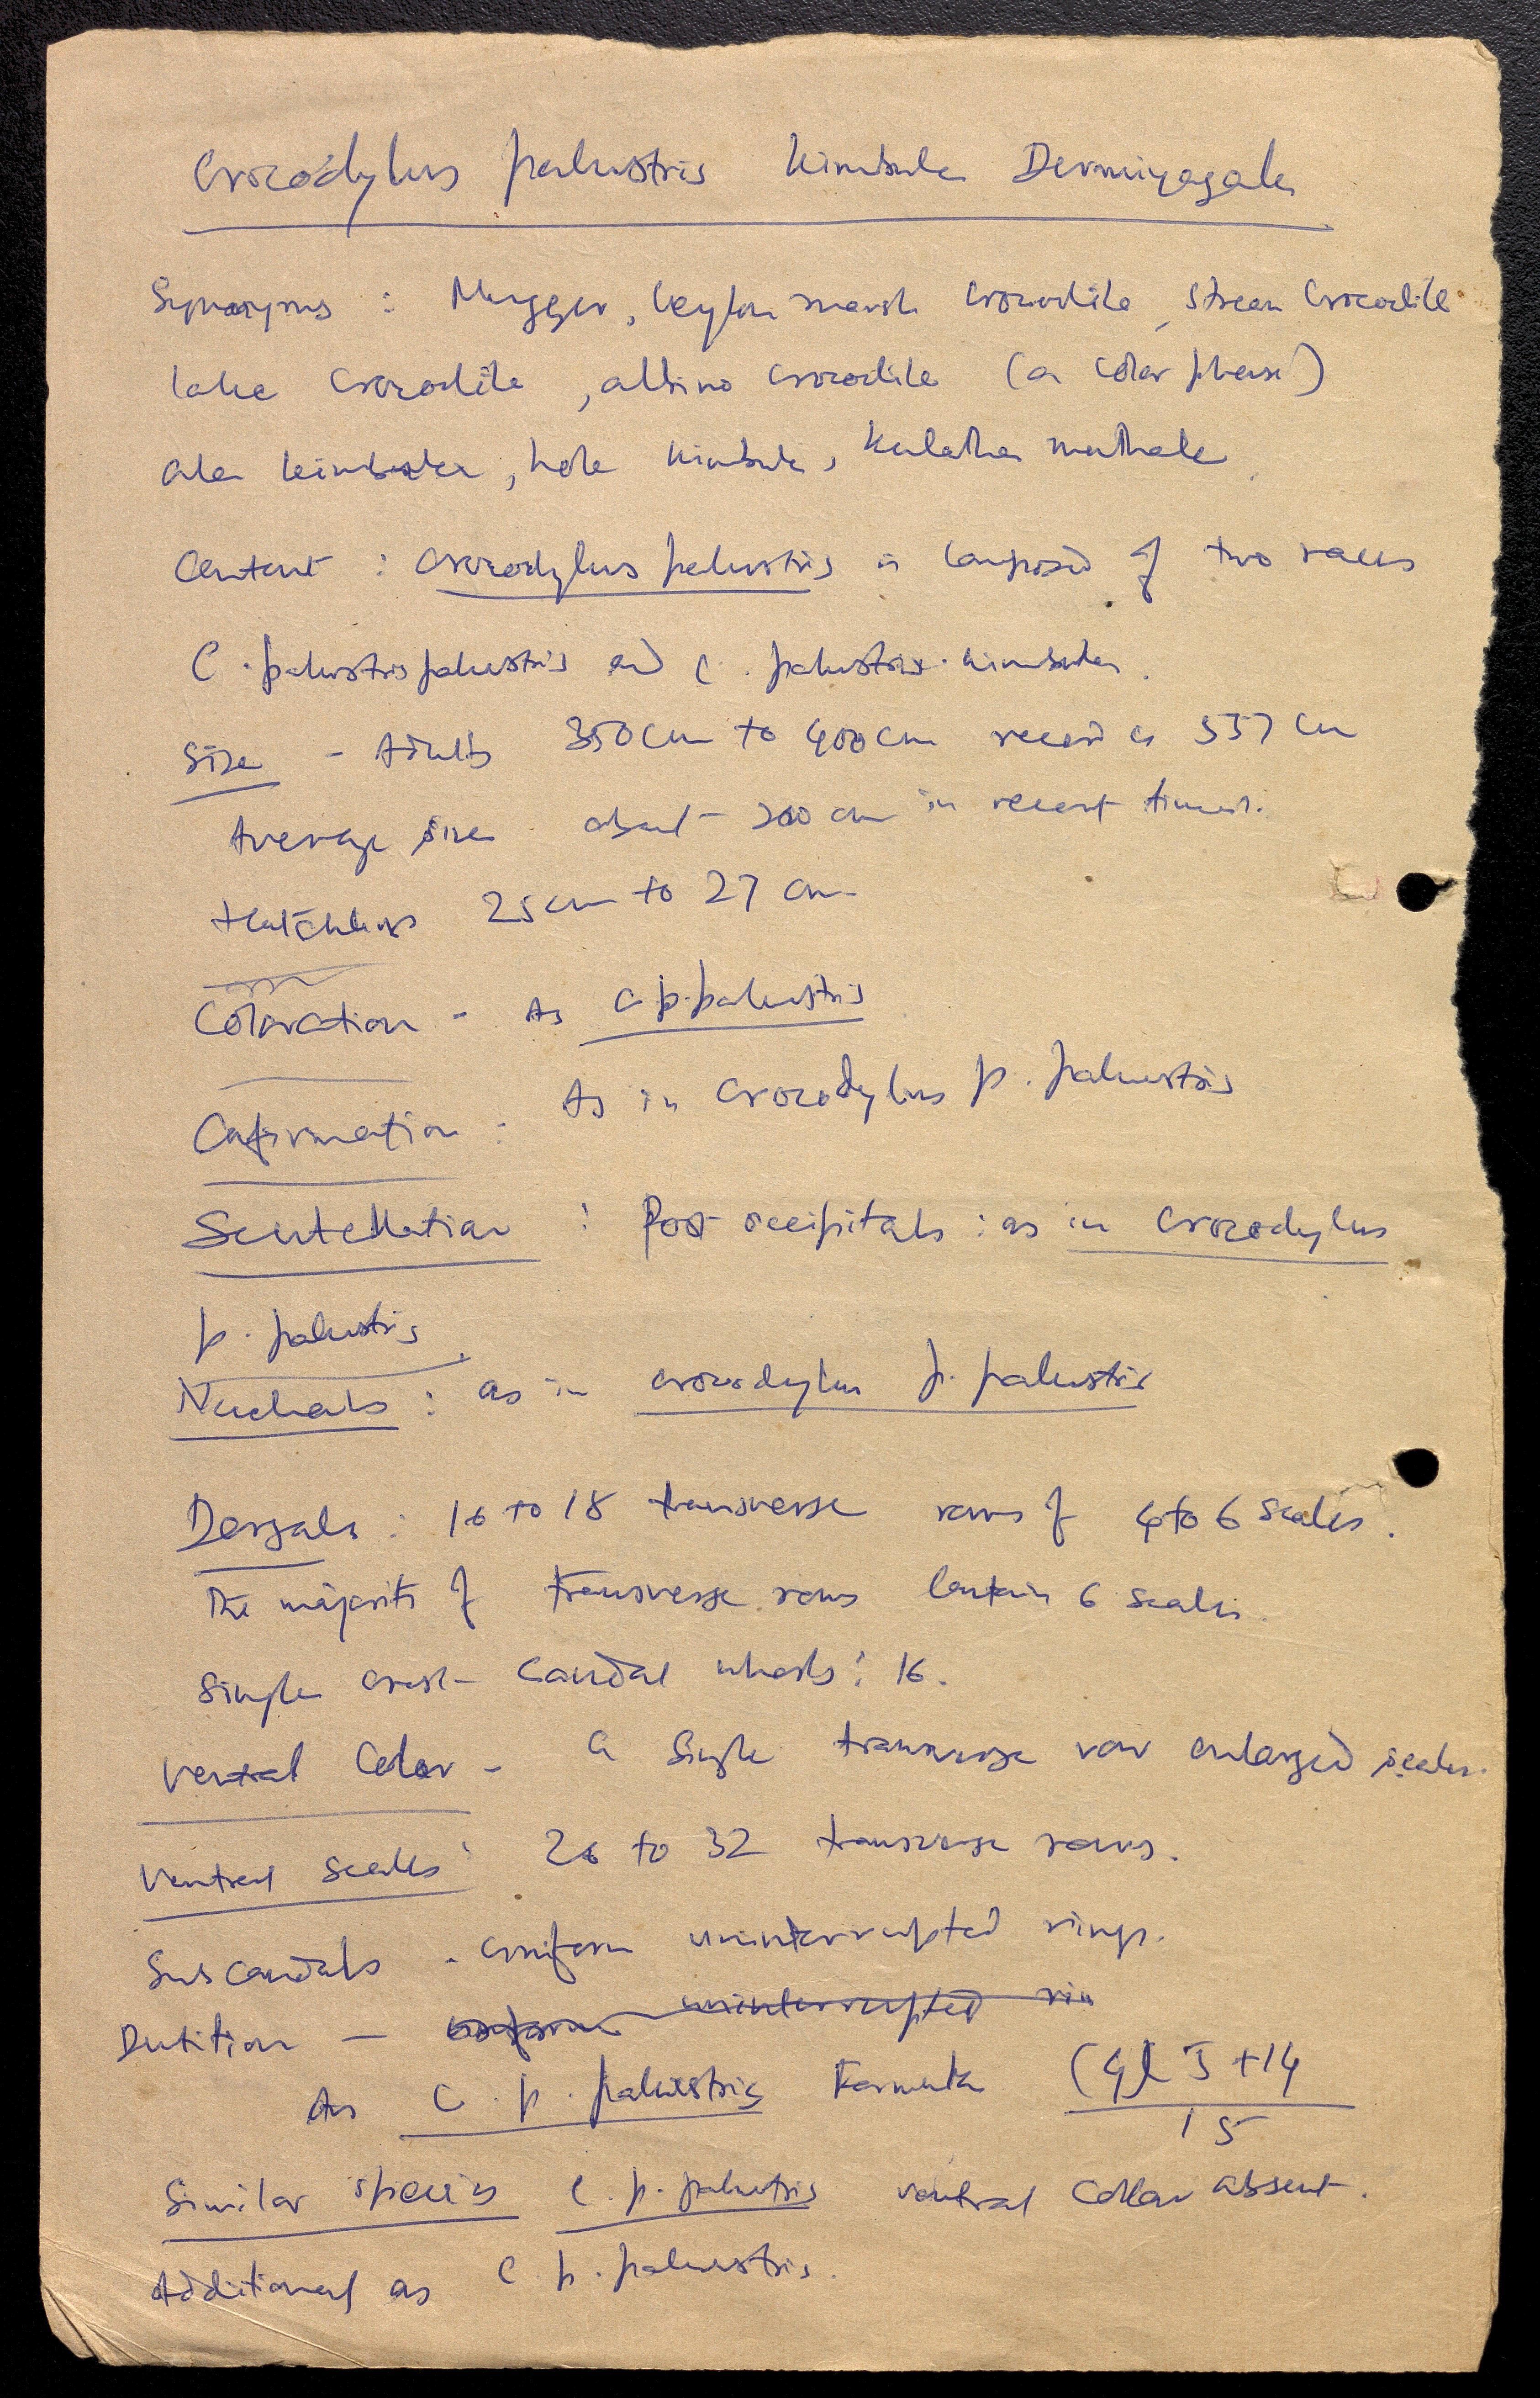 Crocodylus palustris kimbula Deraniyagala
Synonyms : Mugger, Ceylon marsh crocodile, stream crocodile
lake crocodile, albino crocodile (a color phase)
ala kimbula, hale kimbula, kulathea muthale
Content : Crocodylus palustris is composed of two races
C. palustris palustris and C. palustris kimbula.
Size - Adults 350 cm to 400 cm record is 557 cm
Average size about 300 cm in recent times.
Hatchlings 25 cm to 27 cm
Coloration - As C p. palustris
Confirmation : As in Crocodylus p. palustris
Scutellation : Post occipitals : as in Crocodylus
p. palustris.
Nuchals : as in crocodylus p. palustris
Dorsals : 16 to 18 transverse rows of 4 to 6 scales.
The majority of transverse rows contain 6 scales.
Single crest caudal whorls : 16.
Ventral Color - A single transverse row enlarged scales.
Ventral scales : 26 to 32 transverse rows.
Subcaudals - uniform uninterrupted rings.
Dentition - uniform uninterrupted rin
As C. p. palustris Formula (4) 5 + 14
15
Similar species C. p. palustris ventral collar absent.
Additional as C p. palustris.